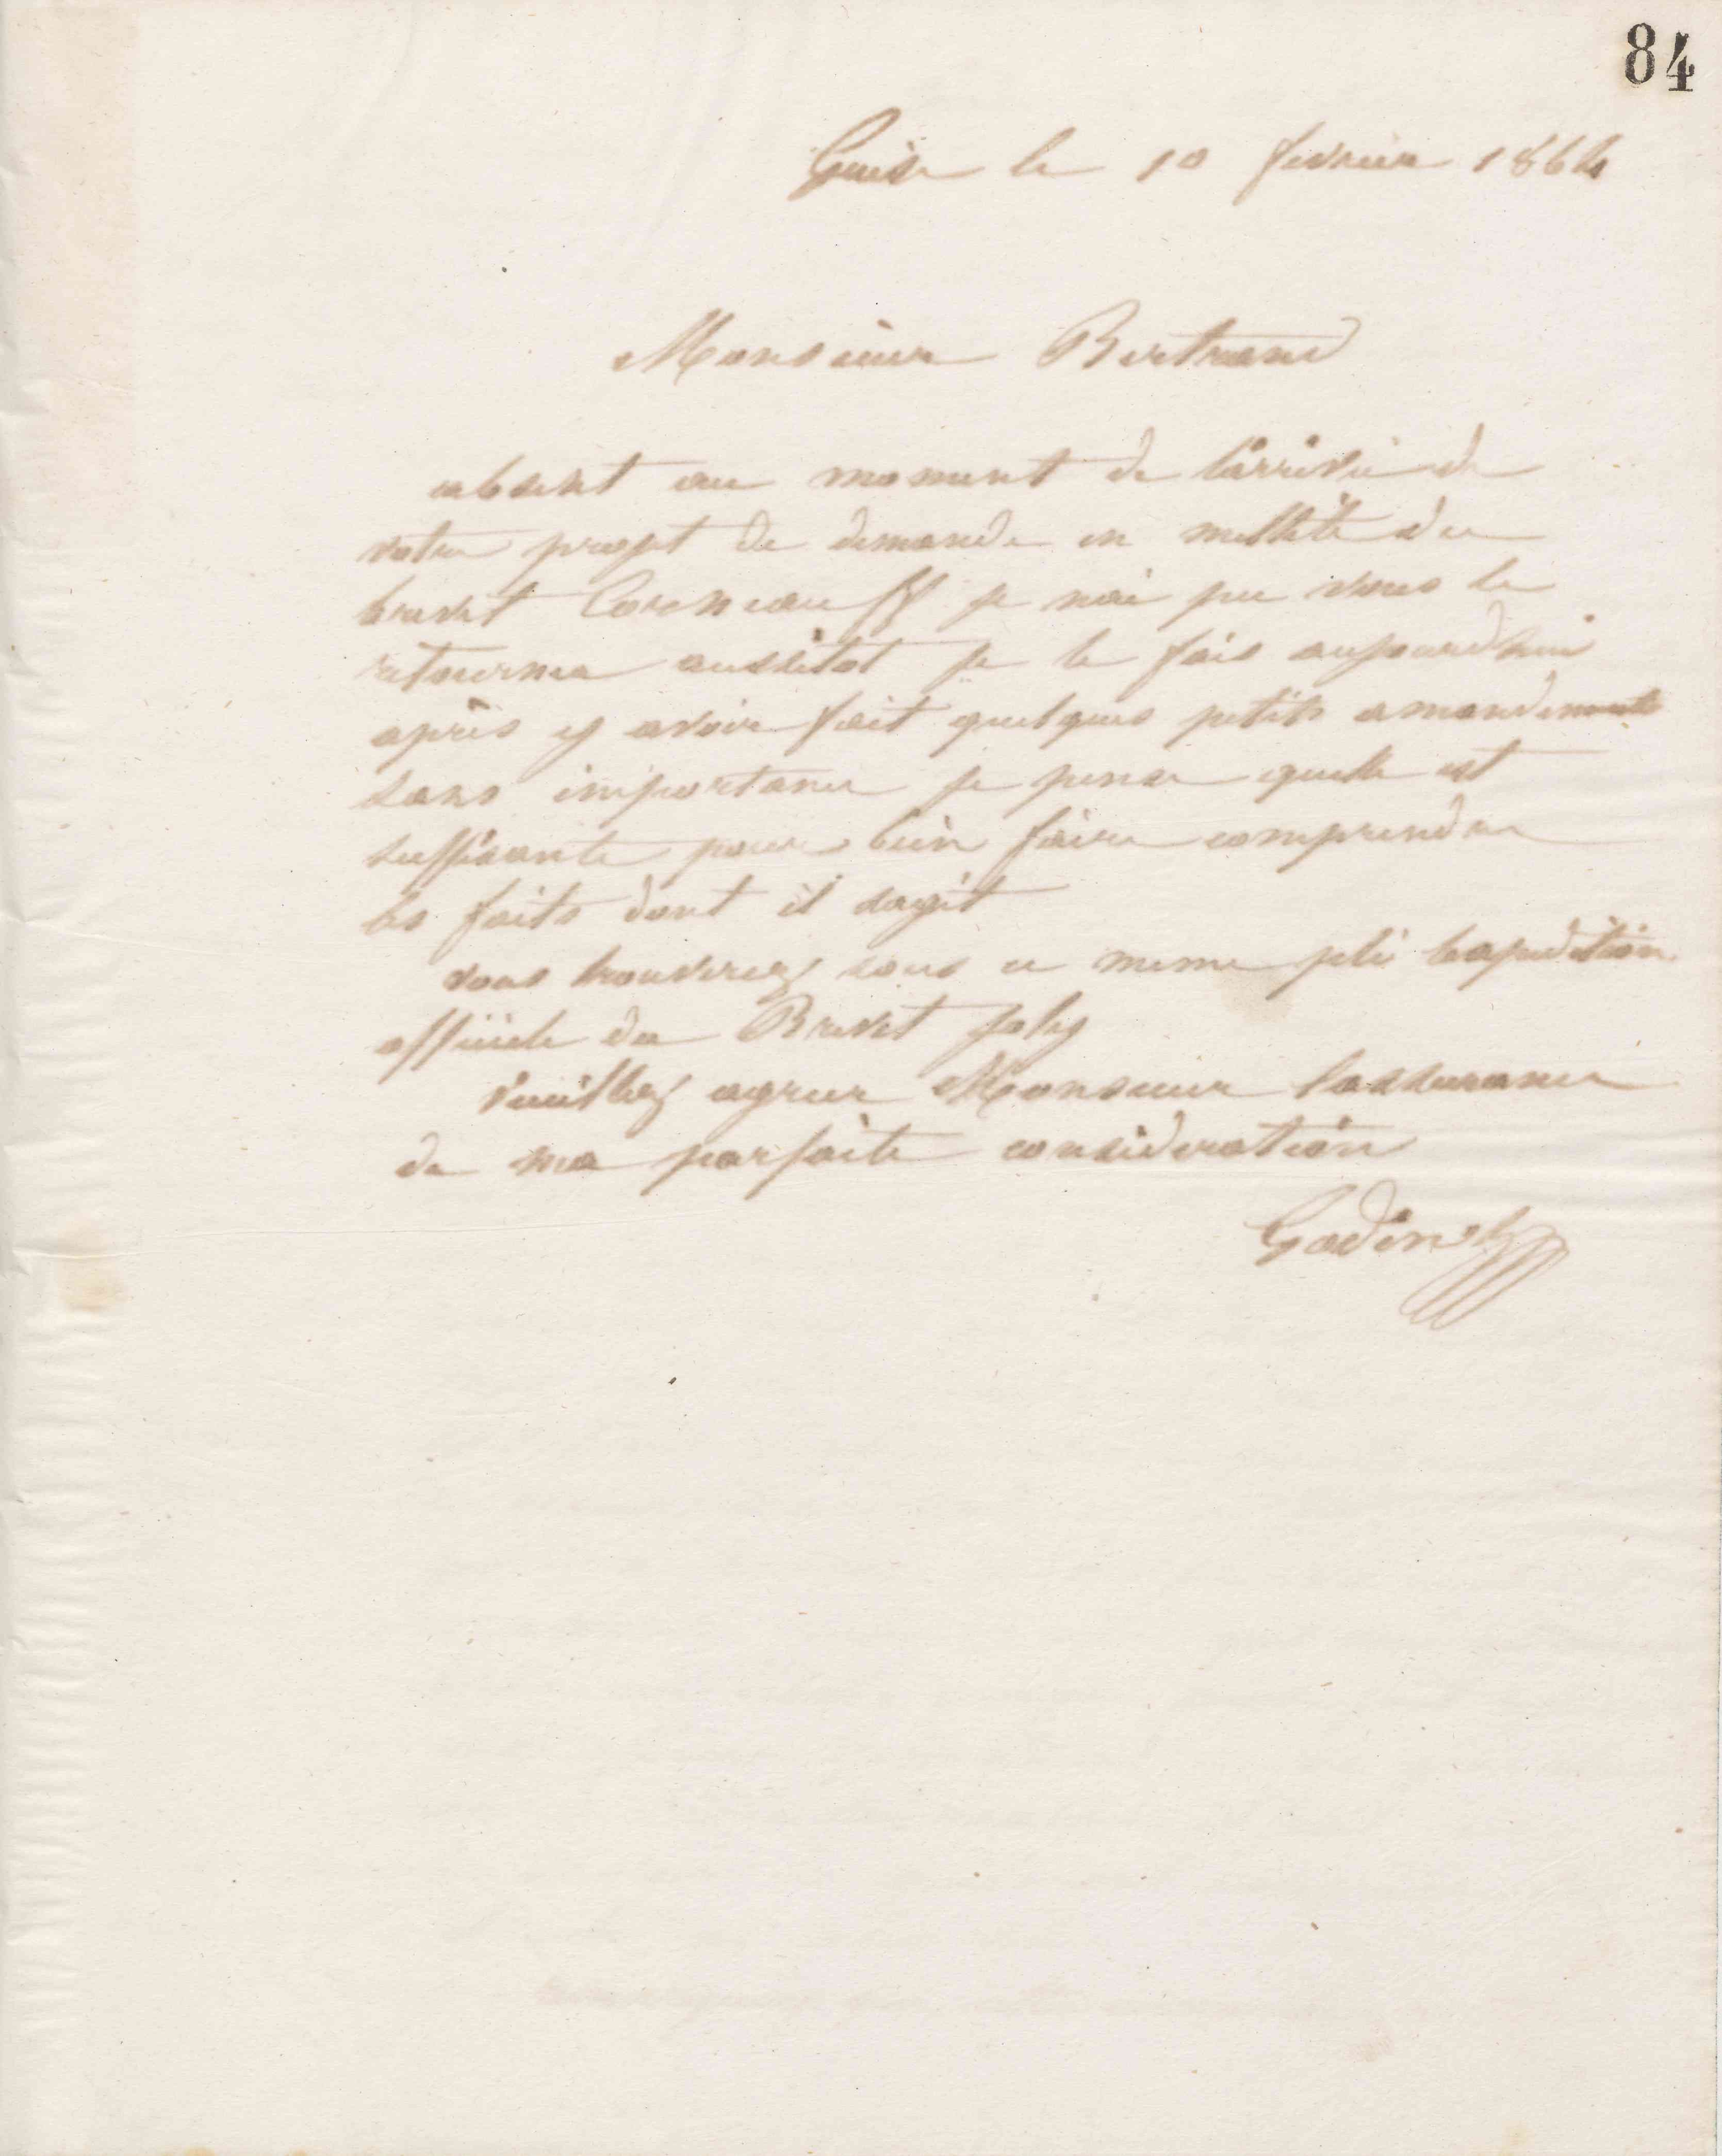 84
Guise le 10 fevrier 1864
Monsieur Bertrand
absent au moment de l'arrivée de
votre projet de demande en nullité du
brevet Corneau ff je nai pu vous le
retourner aussitot je le fais aujourdhui
après y avoir fait quelques petits amandements
sans importance je pense quelle est
suffisante pour bien faire comprendre
les faits dont il sagit
vous trouverez sous ce meme pli lexpedition
officiele du Brevet Joly
Veuillez agreer Monsieur lassurance
de ma parfaite consideration
Godin